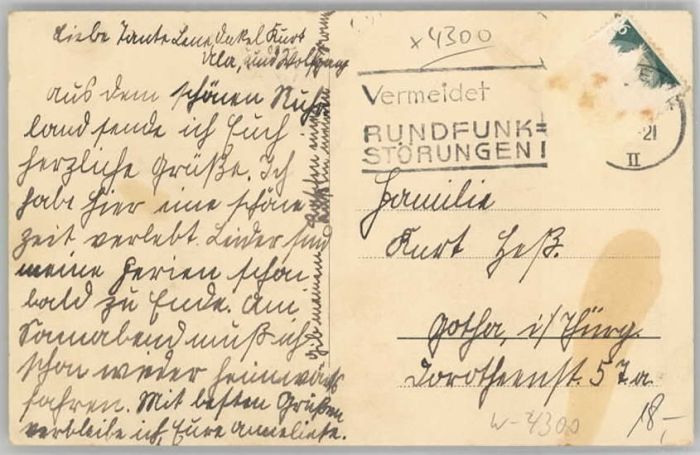 Liebe Tante Lene, Onkel Kurt
Ula, und Wolfgang
aus dem schönen Ruh
land sende ich Euch
herzliche Grüße. Ich
habe hier eine schöne
Zeit verlebt. Leider sind
meine Ferien schon
bald zu Ende. Am
Sonnabend muß ich
schon wieder heimwärts
fahren. Mit besten Grüßen
verbleibe ich, Eure Anneliese.
x 4300
Vermeidet
RUNDFUNK=
STÖRUNGEN!
-21
II
Familie
Kurt Heß.
Gotha, i/Thürg.
Dorotheenst. 57a
W-4300
18,-